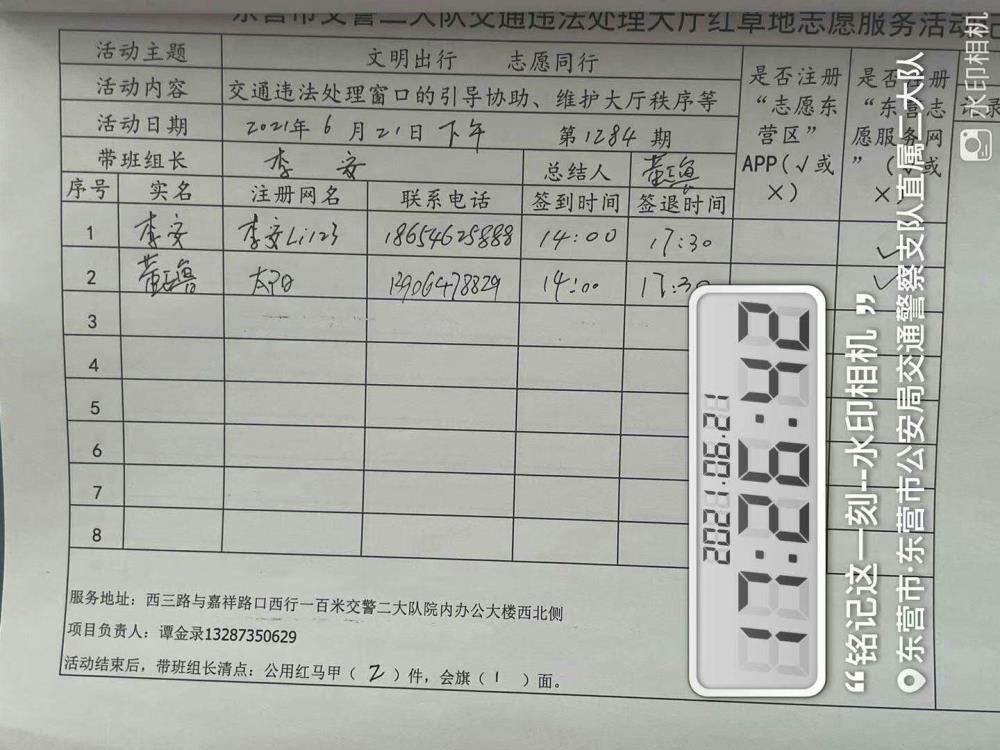 东营市交警二大队交通违法处理大厅红草地志愿服务活动记
活动主题 文明出行 志愿同行 是否注册“志愿东营区”APP(√或×) 是否注册“东营志愿服务网”(√或×)
活动内容 交通违法处理窗口的引导协助、维护大厅秩序等
活动日期 2021年6月21日下午 第1284期
带班组长 李安 总结人
序号 实名 注册网名 联系电话 签到时间 签退时间
1 李安 李安Li123 18654625888 14:00 17:30 ✓
2 太阳 13906478829 14:00 17:30 ✓
3
4
5
6
7
8
服务地址：西三路与嘉祥路口西行一百米交警二大队院内办公大楼西北侧
项目负责人：谭金录13287350629
活动结束后，带班组长清点：公用红马甲（2）件，会旗（1）面。
2021.06.21
“铭记这一刻--水印相机”
东营市·东营市公安局交通警察支队直属二大队
水印相机